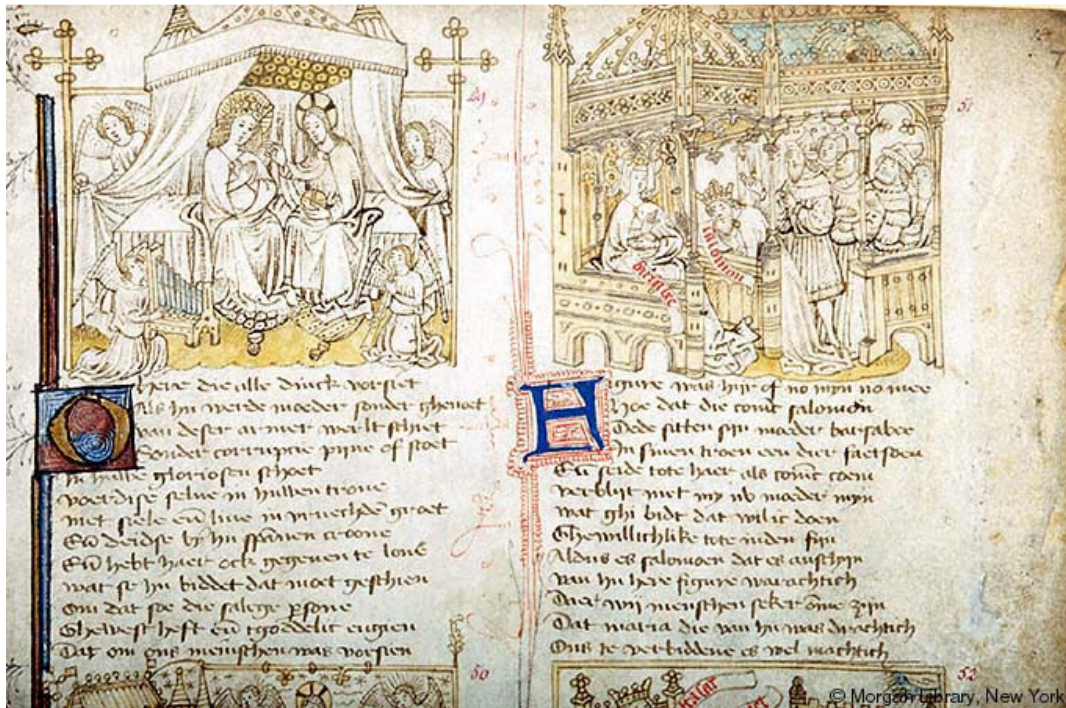 49
51
bersabee
salomon
O here die alle dinck voersiet
Als hu werde moeder sonder ghenoet
Van deser armer werlt schiet
Sonder corrupcie pijne of stoet
In huwe gloriosen schoet
Voerdise selve in huwen trone
Met siele eñ live in vruechden groet
Eñ deidse by hu spannen croone
Eñ hebt haer ock gegeven te lone
Wat se hu biddet dat moet geschien
Om dat soe die salege psone
Ghewest heft eñ tgoddelic engien
Dat om ons menschen was voersien
50
Figure was hijr of no myn no mee
Hoe dat die coninc salomon
Dede sitten sijn moeder barsabee
In sinen troen een dier faetsoen
Eñ seide tote haer als coninc coen
Verblijt met my vb moeder myn
Wat ghi bidt dat wil ic doen
Ghewillichlike tote inden fijn
Aldus es salomon dat es anschijn
Van hu here figure warachtich
Dies wij menschen seker om̄e zijn
Dat maria die van hu was drachtich
Ons te verbiddene es wel machtich
52
© Morgan Library, New York